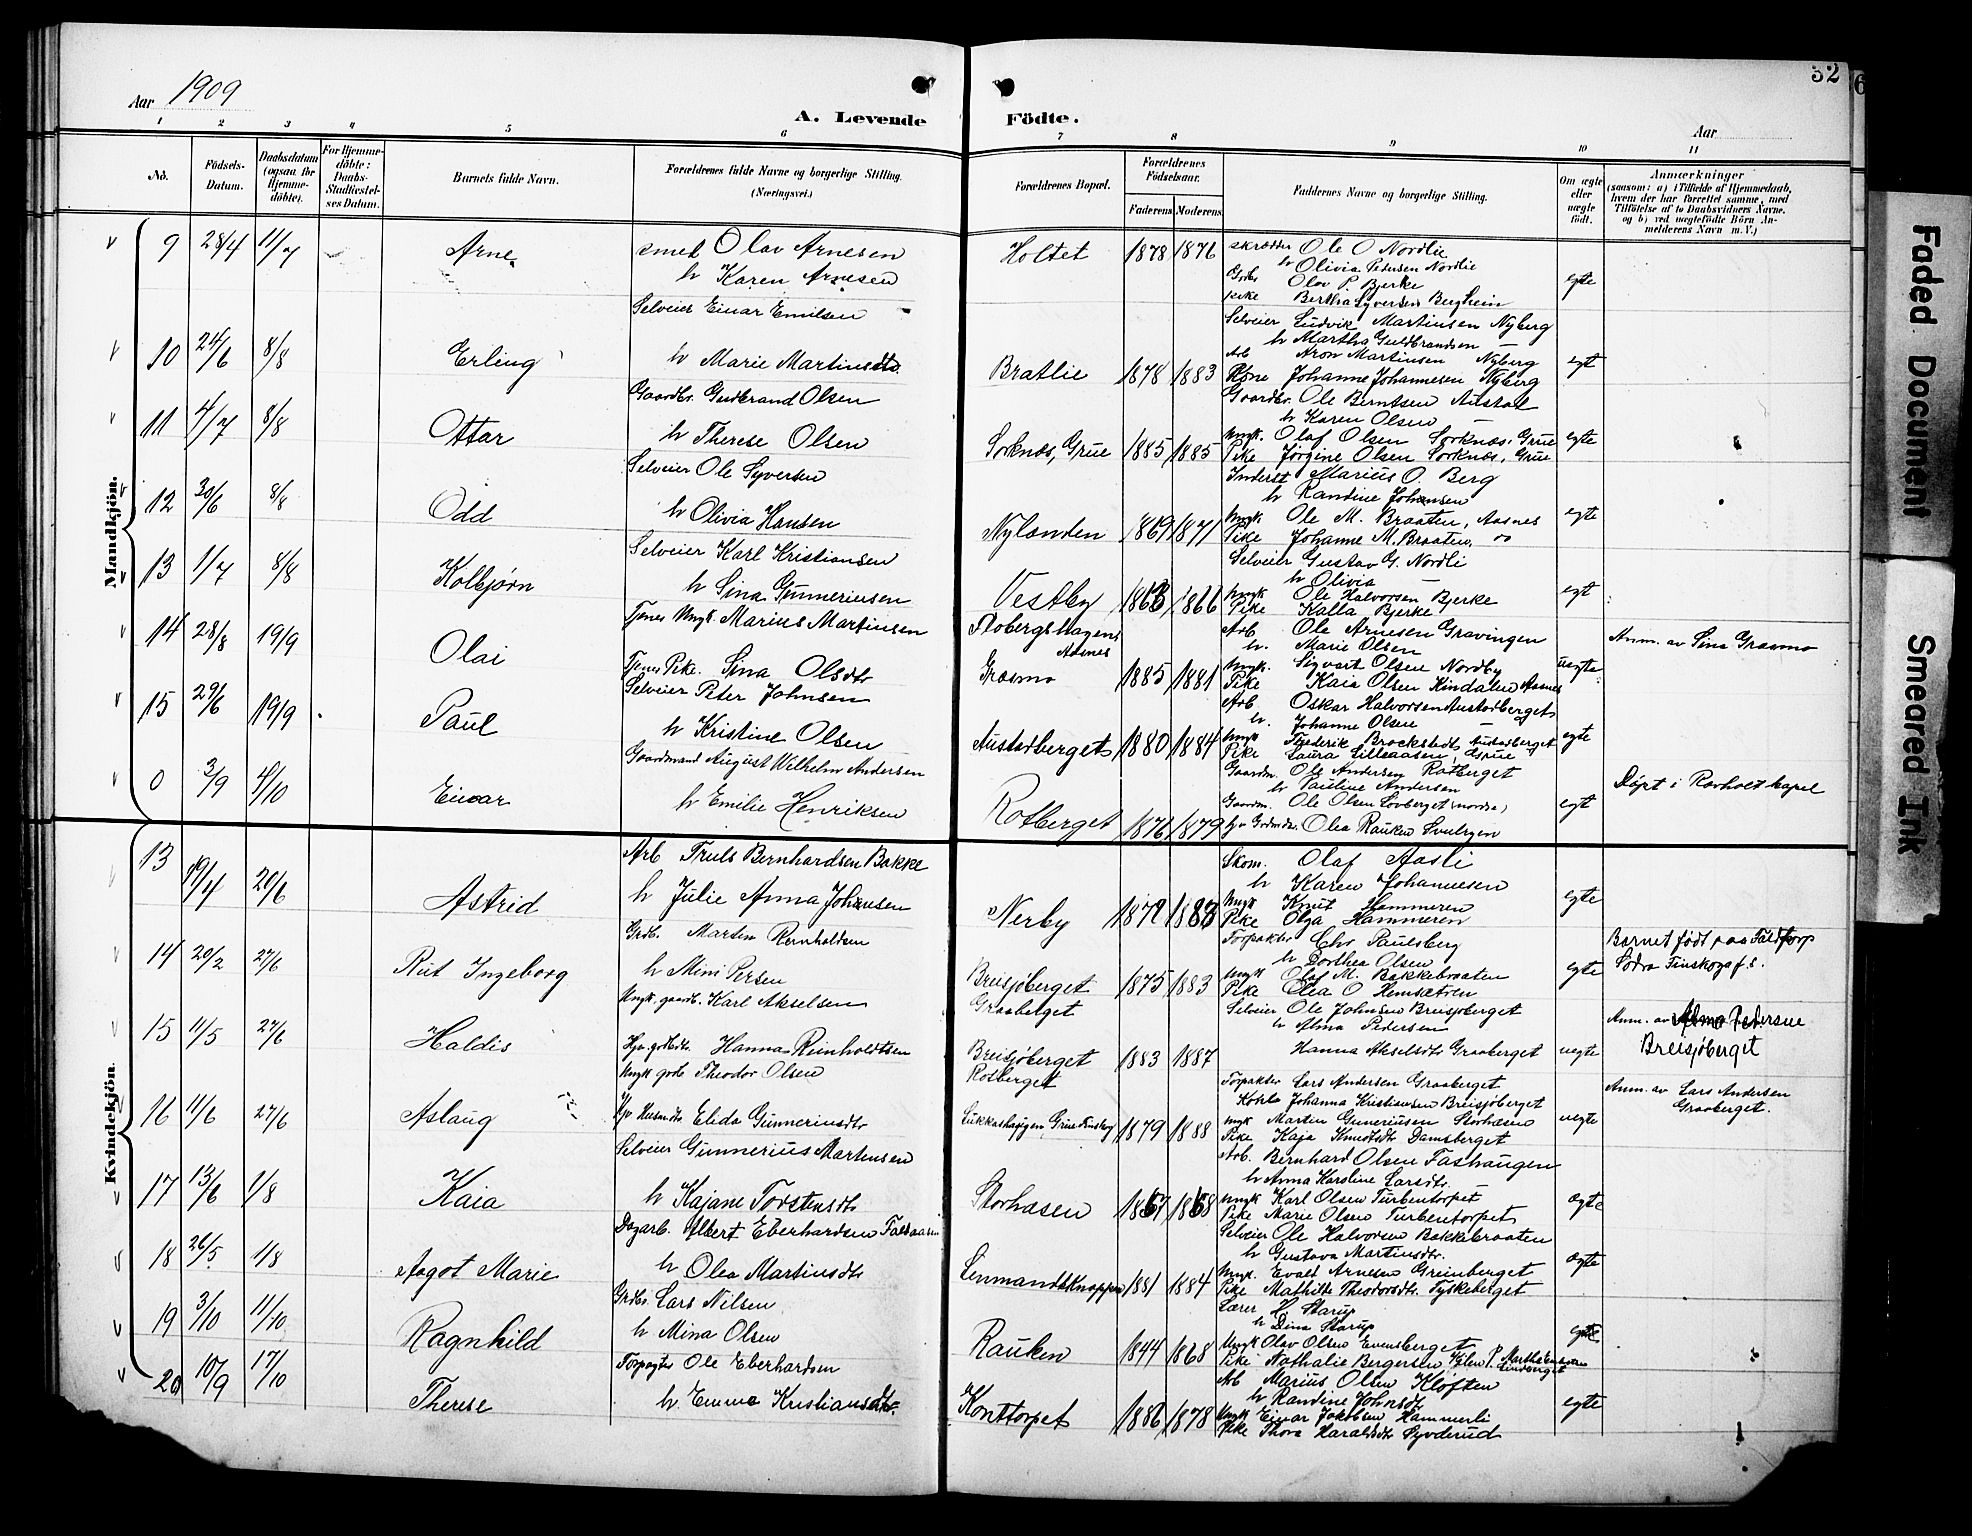 Aar 1909
A. Levende Födte.
Aar
32
1 2 3 4 5 6 7 8 9 10 11
No.
Födsels-Datum.
Daabsdatum (ogsaa for Hjemme-döbte).
For Hjemme-döbte: Daabs-Stadfæstel-ses Datum.
Barnets fulde Navn.
Forældrenes fulde Navne og borgerlige Stilling. (Næringsvei.)
Forældrenes Bopæl.
Forældrenes Födselsaar.
Faderens Moderens
Faddernes Navne og borgerlige Stilling.
Om ægte eller uægte födt.
Anmærkninger
(saasom: a) i Tilfælde af Hjemmedaab, hvem der har forrettet samme, med Tilföielse af to Daabsvidners Navne. og b) ved uægtefödte Börn An-melderens Navn m. V.)
Mandkjön.
9 28/4 11/7 Arne
smed Olav Arnesen
h Karen Arnesen
Holtet 1878 1876
skrædder Ole O Nordlie
h Olivia Pedersen Nordlie
Grdbr Olav P. Bjerke
pike Bertha Syversen Bergheim
egte
10 24/6 8/8 Erling
Selveier Einar Emilsen
h Marie Martinsdtr.
Bratlie 1878 1883
Selveier Ludvik Martinsen Nyberg
h Martha Guldbrandsen
Arb Aron Martinsen Nyberg
Kone Johanne Johannesen Nyberg
egt
11 4/7 8/8 Ottar
Gaardbr. Gudbrand Olsen
h Therese Olsen
Sorknæs, Grue 1885 1885
Gaardbr. Ole Berntsen Austad
h Karen Olsen
Ungk. Olaf Olsen Sorknæs, Grue
Pike Jørgine Olsen Sorknæs, Grue
egte
12 30/6 8/8 Odd
Selveier Ole Syversen
h Olivia Hansen
Nylænden 1869 1871
Inderst Marius O. Berg
h Randine Johansen
Ungk Ole M. Braaten, Aasnes
Pike Johanne M. Braaten, oo
egte
13 1/7 8/8 Kolbjørn
Selveier Karl Kristiansen
h Sina Gunneriusen
Vestby 1863 1866
Selveier Gustav G. Nordli
h Olivia —
Ungk Ole Halvorsen Bjerke
Pike Kalla Bjerke
egt
14 28/8 19/9 Olai
Tjenes Ungk. Marius Martinsen
Tjenes Pike. Sina Olsdtr
Flobergshagen, Aasnes
Græsmo 1885 1881
Arb Ole Arnesen Gravingen
h. Marie Olsen
Ungk. Sigvart Olsen Nordby
Pike Kaia Olsen Kindalen Aasnes
uegte
Anm. av Sina Græsmo
15 29/6 19/9 Paul
Selveier Peter Johnsen
h Kristine Olsen
Austadberget 1880 1884
Arb Oskar Halvorsen Austadberget
h. Johanne Olsen —
Ungk Frederik Brockstedt, Austadberget
Pike Laura Lilleaasen, Grue
egte
0 3/9 4/10 Einar
Gaardmand August Wilhelm Andersen
h Emilie Henriksen
Rotberget 1876 1879
Gaardm. Ole Andersen Rotberget
h Pauline Andersen
Gaardm. Ole Olsen Lövberget (nordre)
Olea Rauken
egt
Døpt i Rovholt kapel
Kvindekjön.
13 19/4 20/6 Astrid
Arb Truls Bernhardsen Bakke
h Julie Anna Johansen
Nerby 1872 1883
Skom. Olaf Aasli
h Karen Johannesen
Ungk Knut Hammeren
Pike Olga Hammeren
egte
14 20/2 27/6 Rut Ingeborg
Grdb. Martin Reinholdsen
h Mini Persen
Breisjøberget 1875 1883
Torpakter Chr Paulsberg
h Dorthea Olsen
Ungk Olaf M. Bakkebraaten
Pike Olea O Hemsætren
egte
Barnet født paa Fäldtorp
Södra Finskoga f.s.
15 11/5 27/6 Haldis
Ungk. gaardb. Karl Akselsen
Hjv. gdbdtr. Hanna Reinholdtsen
Graaberget
Breisjøberget 1883 1887
Selveier Ole Johnsen Breisjøberget
h Alma Pedersen
Hanna Akselsdtr Graaberget
uegte
Anm. av Alma Pedersne
Breisjøberget
16 11/6 27/6 Aslaug
Ungk grdb Theodor Olsen
Hjv Husmdtr Elida Gunneriusdtr
Rotberget
Lukkashaugen Grue Finskog 1879 1888
Torpakter Lars Andersen Graaberget
Johanna Kristiansen Breisjøberget
Ungk Martin Guneriusen Storhasen
Pike Kaja Knudtsdtr Damsberget
uegte
Anm. av Lars Andersen
Graaberget.
17 13/6 1/8 Kaia
Selveier Gunnerius Martinsen
h Kajane Torstensdtr
Storhasen 1867 1868
Arb. Bernhard Olsen Fashaugen
h Anna Karoline Larsdtr.
Ungk Karl Olsen Turbentorpet
Pike Marie Olsen Turbentorpet
ægte
18 26/5 1/8 Aagot Marie
Dagarb. Albert Eberhardsen Faldaasen
h Olea Martinsdtr
Lenmandsknappen 1881 1884
Selveier Ole Halvorsen Bakkebraaten
h Gustava Martinsdtr.
Ungk. Evald Arnesen Greinberget
Pike Mathilde Theodorsdtr Tyskeberget
ægte
19 3/10 11/10 Ragnhild
Grdbr. Lars Nilsen
h Mina Olsen
Rauken 1844 1868
Lærer H. Starup
h Dina Starup
Ungk Olav Olsen Evensberget
Pike Nathalie Bergersen, Kilen P. Martha
egte
20 10/9 17/10 Therese
Torpagter Ole Eberhardsen
h Emma Kristiansdtr.
Konttorpet 1886 1878
Arb Marius Olsen Kløften
h Randine Johnsdtr
Ungk Einar Jakobsen Hammerli
Pike Thora Haraldsdtr Syvderud
egte
Faded Document
Smeared Ink